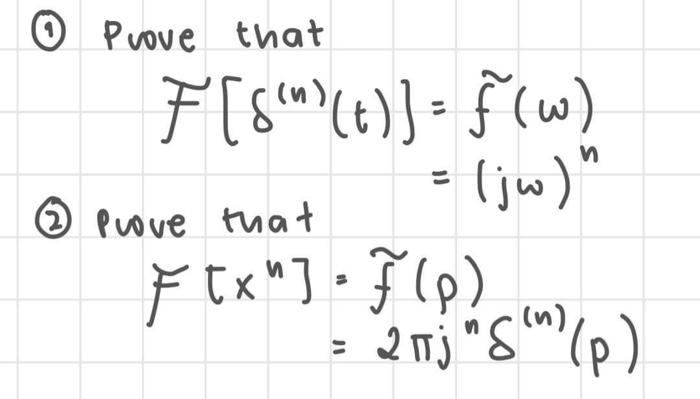 ① Prove that
ℱ[δ⁽ⁿ⁾(t)] = f̃(ω)
= (jω)ⁿ
② Prove that
ℱ[xⁿ] = f̃(p)
= 2πjⁿδ⁽ⁿ⁾(p)